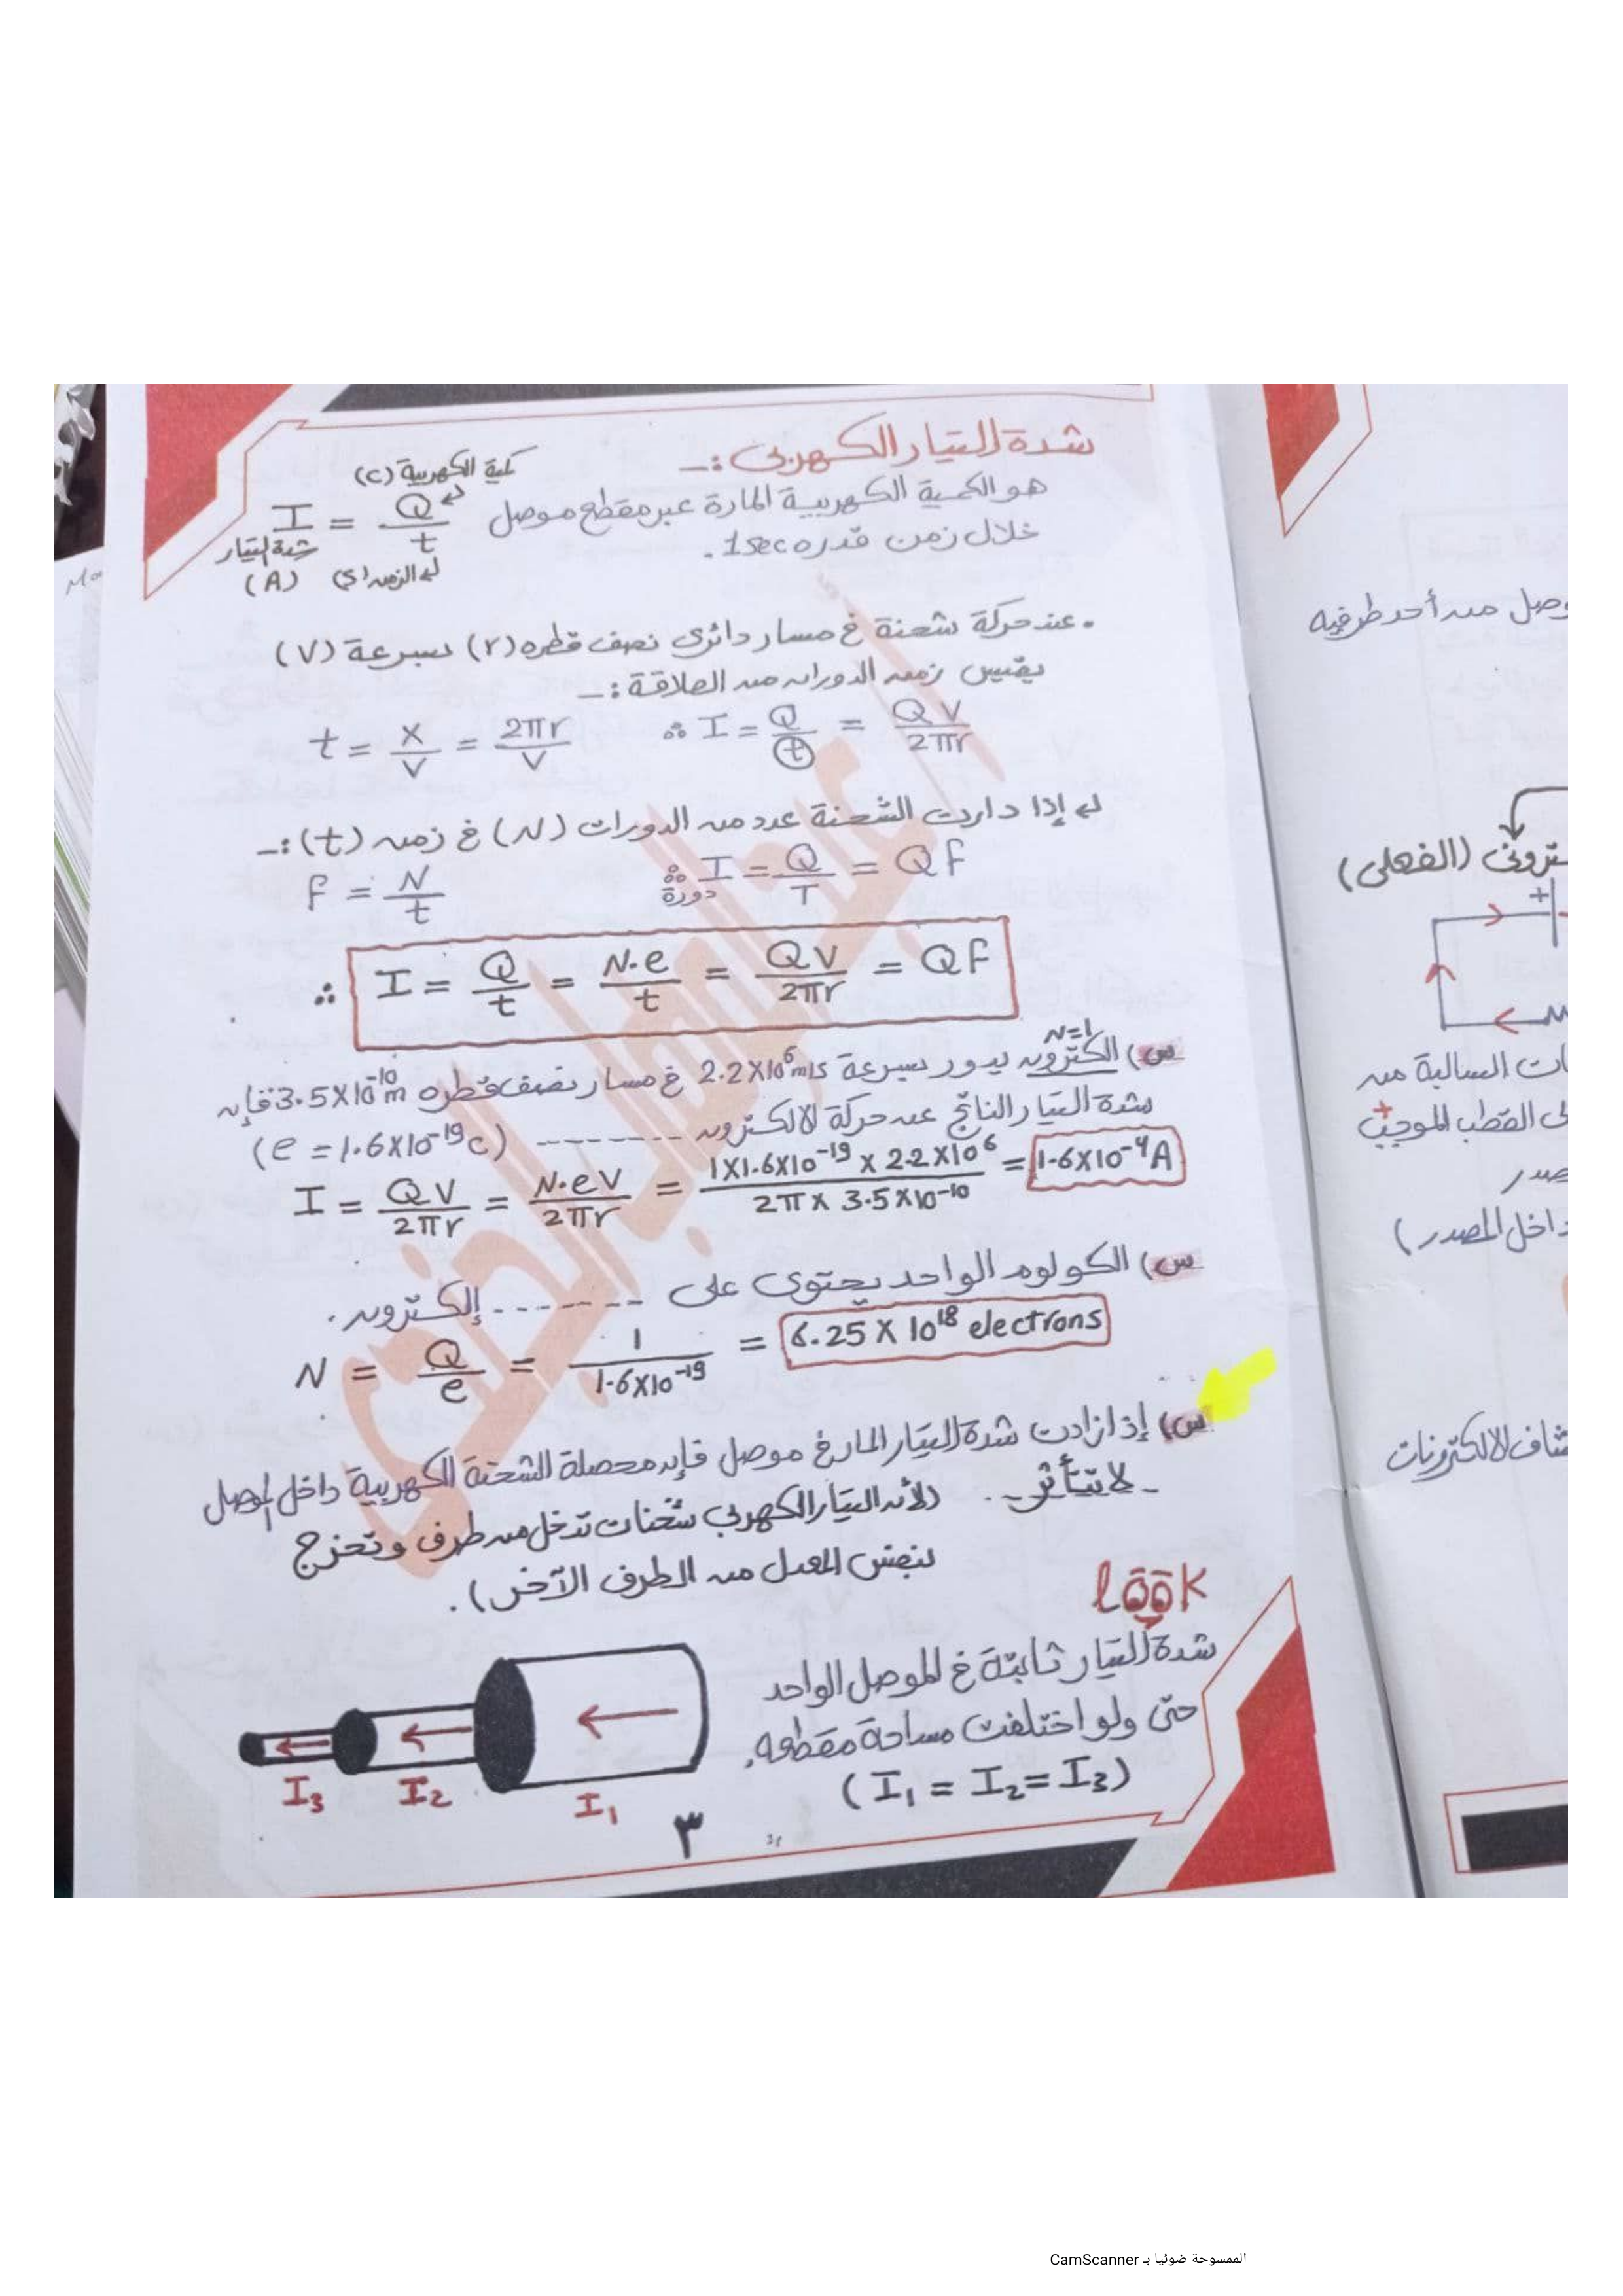 شدة التيار الكهربى :ـ
هو الكمية الكهربية المارة عبر مقطع موصل
خلال زمن قدره 1sec .
كمية الكهربية (C)
I = Q / t
شدة التيار (A)
الزمن (S)
• عند حركة شحنة في مسار دائرى نصف قطره (r) بسرعة (V)
يقيس زمن الدوران من العلاقة :ـ
t = X / V = 2πr / V ∴ I = Q / t = QV / 2πr
إذا دارت الشحنة عدد من الدورات (N) في زمن (t) :ـ
f = N / t ∴ I = Q / T = Qf
دورة
∴ I = Q / t = N.e / t = QV / 2πr = Qf
N=1
س) الكترون يدور بسرعة 2.2X10⁶m/s في مسار نصف قطره 3.5X10⁻¹⁰m فإن
شدة التيار الناتج عن حركة الالكترون -------- (e = 1.6X10⁻¹⁹C)
I = QV / 2πr = N.eV / 2πr = 1X1.6X10⁻¹⁹ x 2.2X10⁶ / 2π X 3.5X10⁻¹⁰ = 1.6X10⁻⁴A
س) الكولوم الواحد يحتوى على ------- إلكترون .
N = Q / e = 1 / 1.6X10⁻¹⁹ = 6.25 X 10¹⁸ electrons
س) إذا زادت شدة التيار المار في موصل فإن محصلة الشحنة الكهربية داخل الموصل
- لا تتأثر - . (لأن التيار الكهربي شحنات تدخل من طرف وتخرج
بنفس المعدل من الطرف الآخر) .
look
شدة التيار ثابتة في الموصل الواحد
حتى ولو اختلفت مساحة مقطعه.
(I₁ = I₂ = I₃)
I₃ I₂ I₁
٣
وصل من أحد طرفيه
(الفعلى)
+
ات السالبة من
القطب الموجب
+
داخل المصدر)
الالكترونات
الممسوحة ضوئيا بـ CamScanner